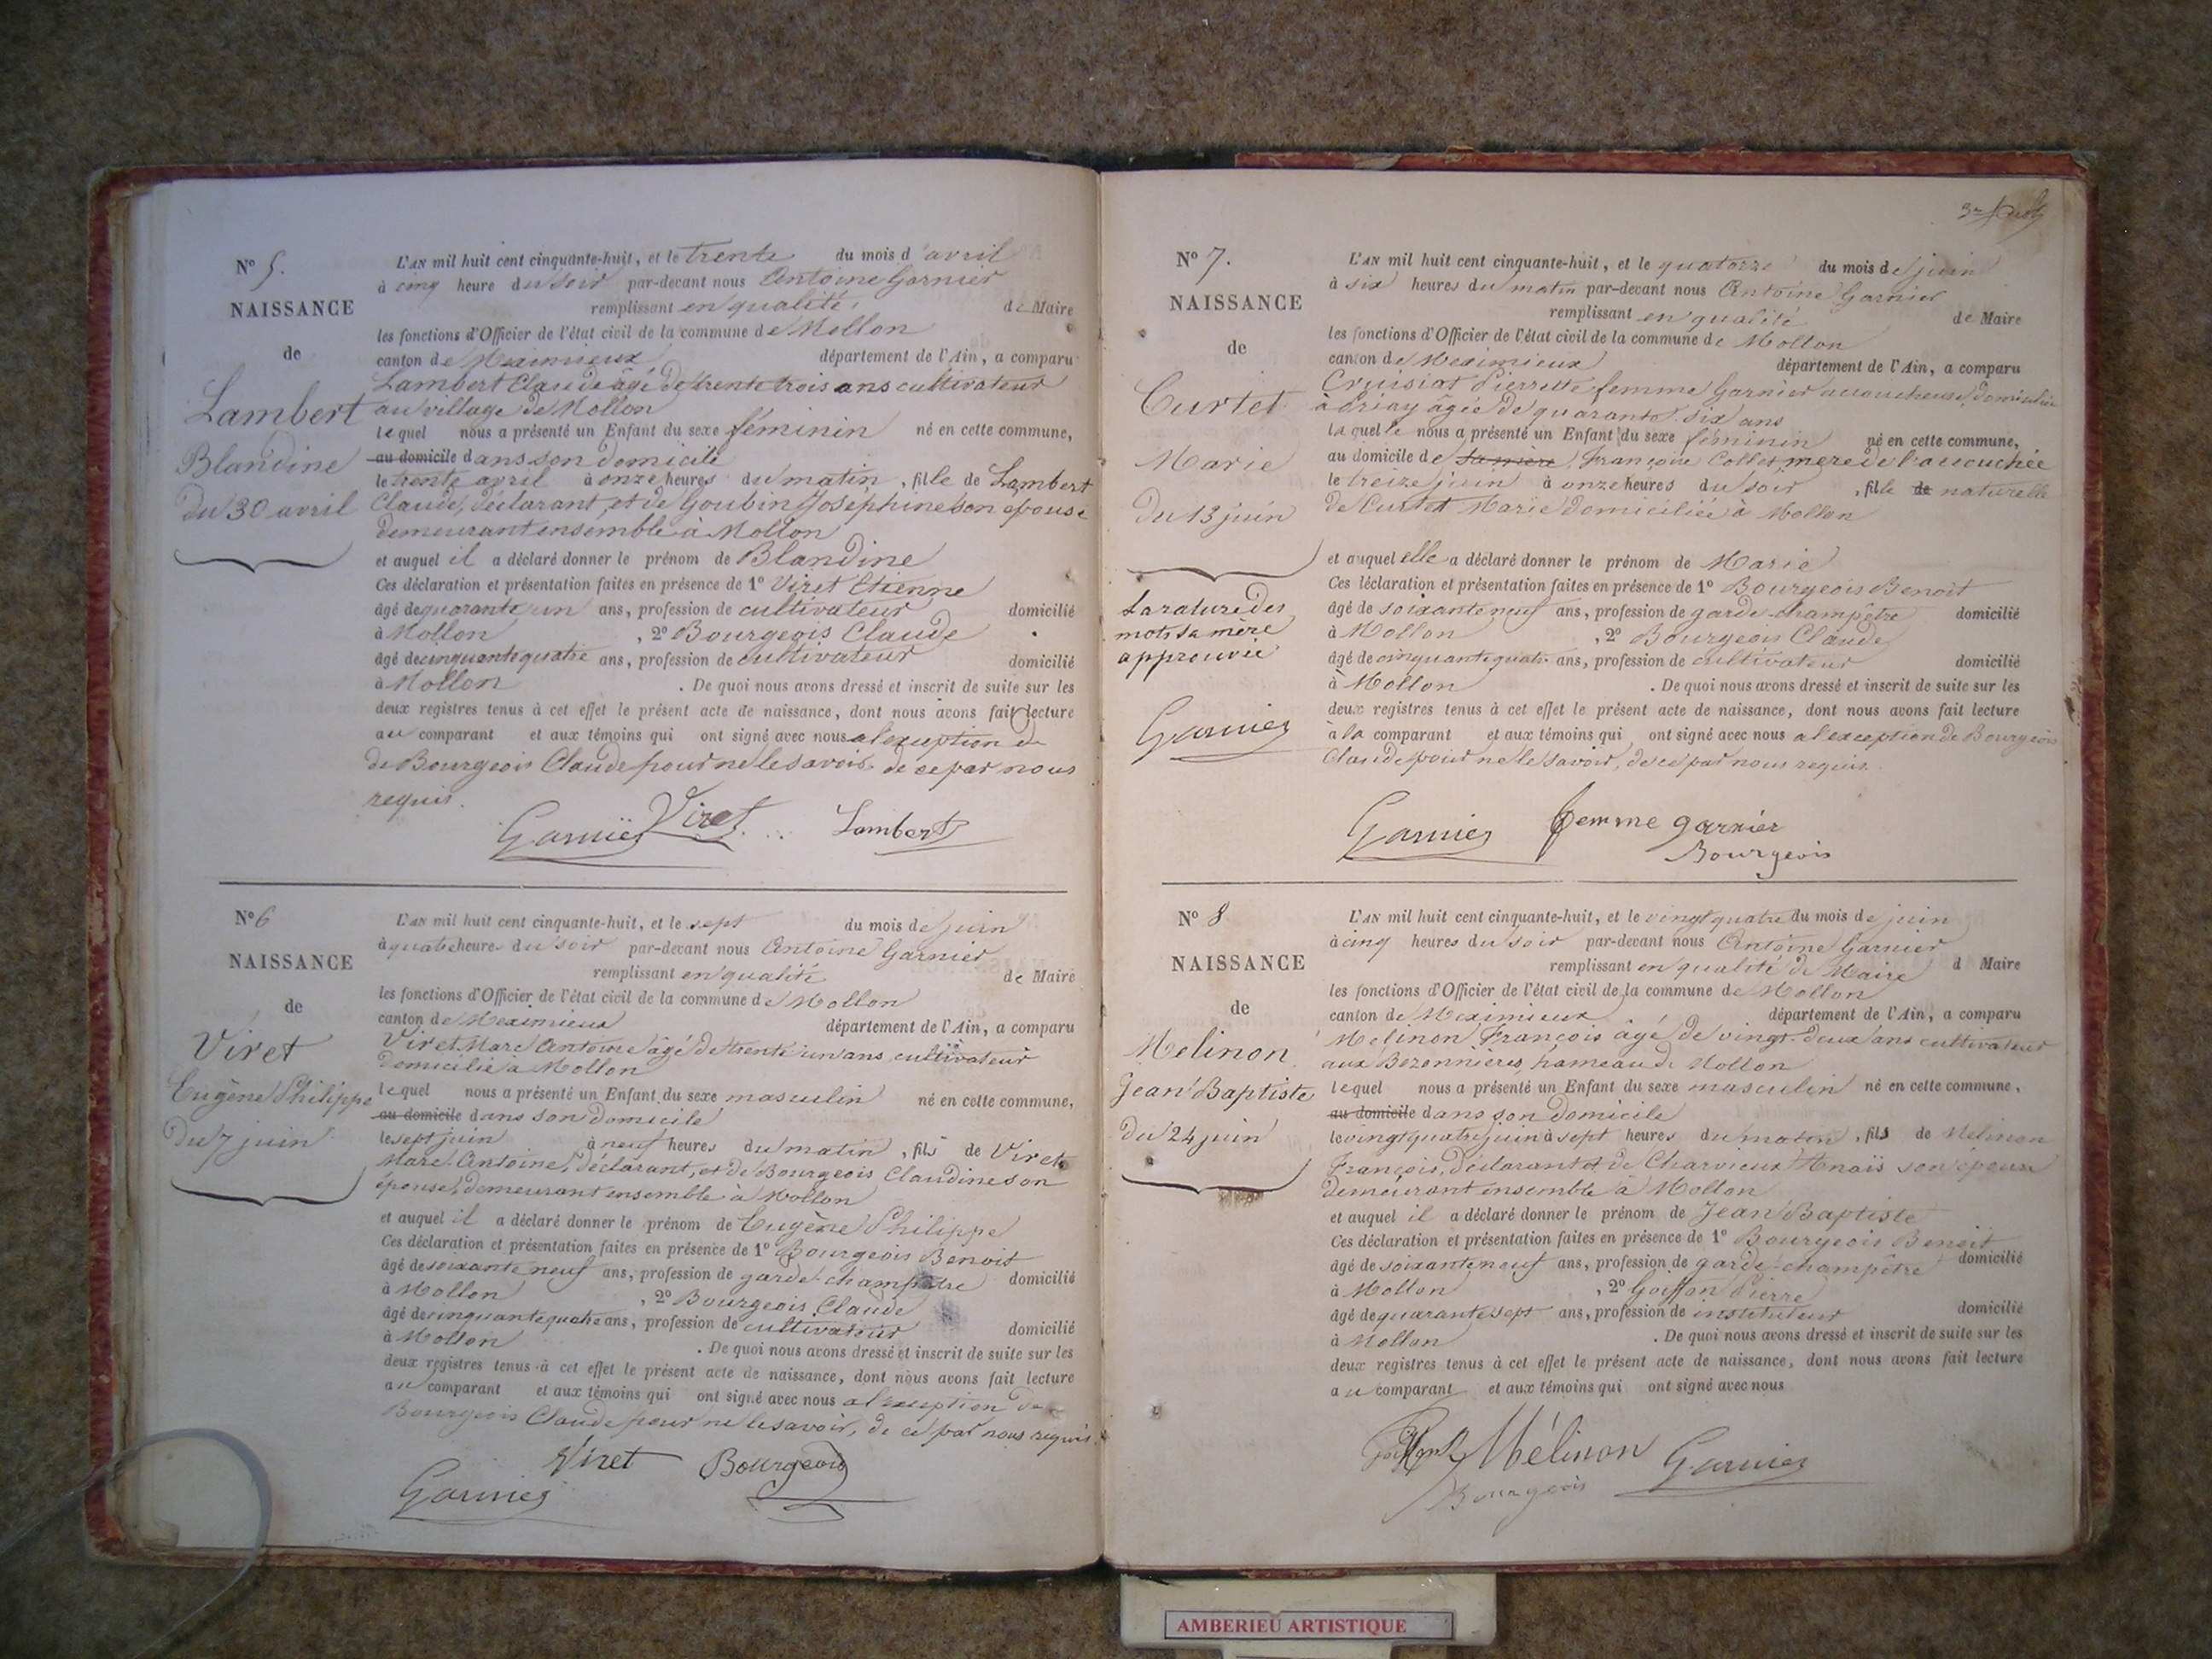 N° 5.
NAISSANCE
de
Lambert
Blandine
du 30 avril
L'AN mil huit cent cinquante-huit, et le trente du mois d'avril
à cinq heure du soir par-devant nous Antoine Garnier
remplissant en qualité de Maire
les fonctions d'Officier de l'état civil de la commune de Mollon
canton de Meximieux département de l'Ain, a comparu
Lambert Claude âgé de trente trois ans cultivateur
au village de Mollon
lequel nous a présenté un Enfant du sexe féminin né en cette commune,
au domicile dans son domicile
le trente avril à onze heures du matin, fille de Lambert
Claude, déclarant et de Goubin Joséphine son épouse
demeurant ensemble à Mollon
et auquel il a déclaré donner le prénom de Blandine
Ces déclaration et présentation faites en présence de 1° Viret Etienne
âgé de quarante un ans, profession de cultivateur domicilié
à Mollon, 2° Bourgeois Claude
âgé de cinquante quatre ans, profession de cultivateur domicilié
à Mollon. De quoi nous avons dressé et inscrit de suite sur les
deux registres tenus à cet effet le présent acte de naissance, dont nous avons fait lecture
au comparant et aux témoins qui ont signé avec nous a l'exception de
de Bourgeois Claude pour ne le savoir de ce par nous
requis.
Garnier Viret Lambert
N° 6
NAISSANCE
de
Viret
Eugène Philippe
du 7 juin
L'AN mil huit cent cinquante-huit, et le sept du mois de juin
à quatre heures du soir par-devant nous Antoine Garnier
remplissant en qualité de Maire
les fonctions d'Officier de l'état civil de la commune de Mollon
canton de Meximieux département de l'Ain, a comparu
Viret Marc Antoine âgé de trente un ans cultivateur
domicilié à Mollon
lequel nous a présenté un Enfant du sexe masculin né en cette commune,
au domicile dans son domicile
le sept juin à neuf heures du matin, fils de Viret
Marc Antoine, déclarant, et de Bourgeois Claudine son
épouse, demeurant ensemble à Mollon
et auquel il a déclaré donner le prénom de Eugène Philippe
Ces déclaration et présentation faites en présence de 1° Bourgeois Benoit
âgé de soixante neuf ans, profession de garde-champêtre domicilié
à Mollon, 2° Bourgeois Claude
âgé de cinquante quatre ans, profession de cultivateur domicilié
à Mollon. De quoi nous avons dressé et inscrit de suite sur les
deux registres tenus à cet effet le présent acte de naissance, dont nous avons fait lecture
au comparant et aux témoins qui ont signé avec nous a l'exception de
Bourgeois Claude pour ne le savoir, de ce par nous requis.
Viret Bourgeois
Garnier
N° 7.
NAISSANCE
de
Curtet
Marie
du 13 juin
La rature des
mots sa mère
approuvée
Garnier
L'AN mil huit cent cinquante-huit, et le quatorze du mois de juin
à six heures du matin par-devant nous Antoine Garnier
remplissant en qualité de Maire
les fonctions d'Officier de l'état civil de la commune de Mollon
canton de Meximieux département de l'Ain, a comparu
Cruisiat Pierrette femme Garnier accoucheuse, domiciliée
à Priay âgée de quarante six ans
laquelle nous a présenté un Enfant du sexe féminin né en cette commune,
au domicile de sa mère Françoise Collet mère de l'accouchée
le treize juin à onze heures du soir, fille de naturelle
de Curtet Marie domiciliée à Mollon
et auquel elle a déclaré donner le prénom de Marie
Ces déclaration et présentation faites en présence de 1° Bourgeois Benoit
âgé de soixante neuf ans, profession de garde-champêtre domicilié
à Mollon, 2° Bourgeois Claude
âgé de cinquante quatre ans, profession de cultivateur domicilié
à Mollon. De quoi nous avons dressé et inscrit de suite sur les
deux registres tenus à cet effet le présent acte de naissance, dont nous avons fait lecture
à la comparant et aux témoins qui ont signé avec nous a l'exception de Bourgeois
Claude pour ne le savoir, de ce par nous requis.
Garnier femme garnier
Bourgeois
N° 8
NAISSANCE
de
Melinon
Jean Baptiste
du 24 juin
L'AN mil huit cent cinquante-huit, et le vingt quatre du mois de juin
à cinq heures du soir par-devant nous Antoine Garnier
remplissant en qualité de Maire d Maire
les fonctions d'Officier de l'état civil de la commune de Mollon
canton de Meximieux département de l'Ain, a comparu
Mélinon François âgé de vingt-deux ans cultivateur
aux Bezonnières, hameau de Mollon
lequel nous a présenté un Enfant du sexe masculin né en cette commune,
au domicile dans son domicile
le vingt quatre juin à sept heures du matin, fils de Melinon
François, déclarant et de Charvieux Anaïs son épouse
demeurant ensemble à Mollon
et auquel il a déclaré donner le prénom de Jean Baptiste
Ces déclaration et présentation faites en présence de 1° Bourgeois Benoit
âgé de soixante neuf ans, profession de garde-champêtre domicilié
à Mollon, 2° Goiffon Pierre
âgé de quarante sept ans, profession de instituteur domicilié
à Mollon. De quoi nous avons dressé et inscrit de suite sur les
deux registres tenus à cet effet le présent acte de naissance, dont nous avons fait lecture
au comparant et aux témoins qui ont signé avec nous
Mélinon Garnier
Bourgeois
AMBERIEU ARTISTIQUE